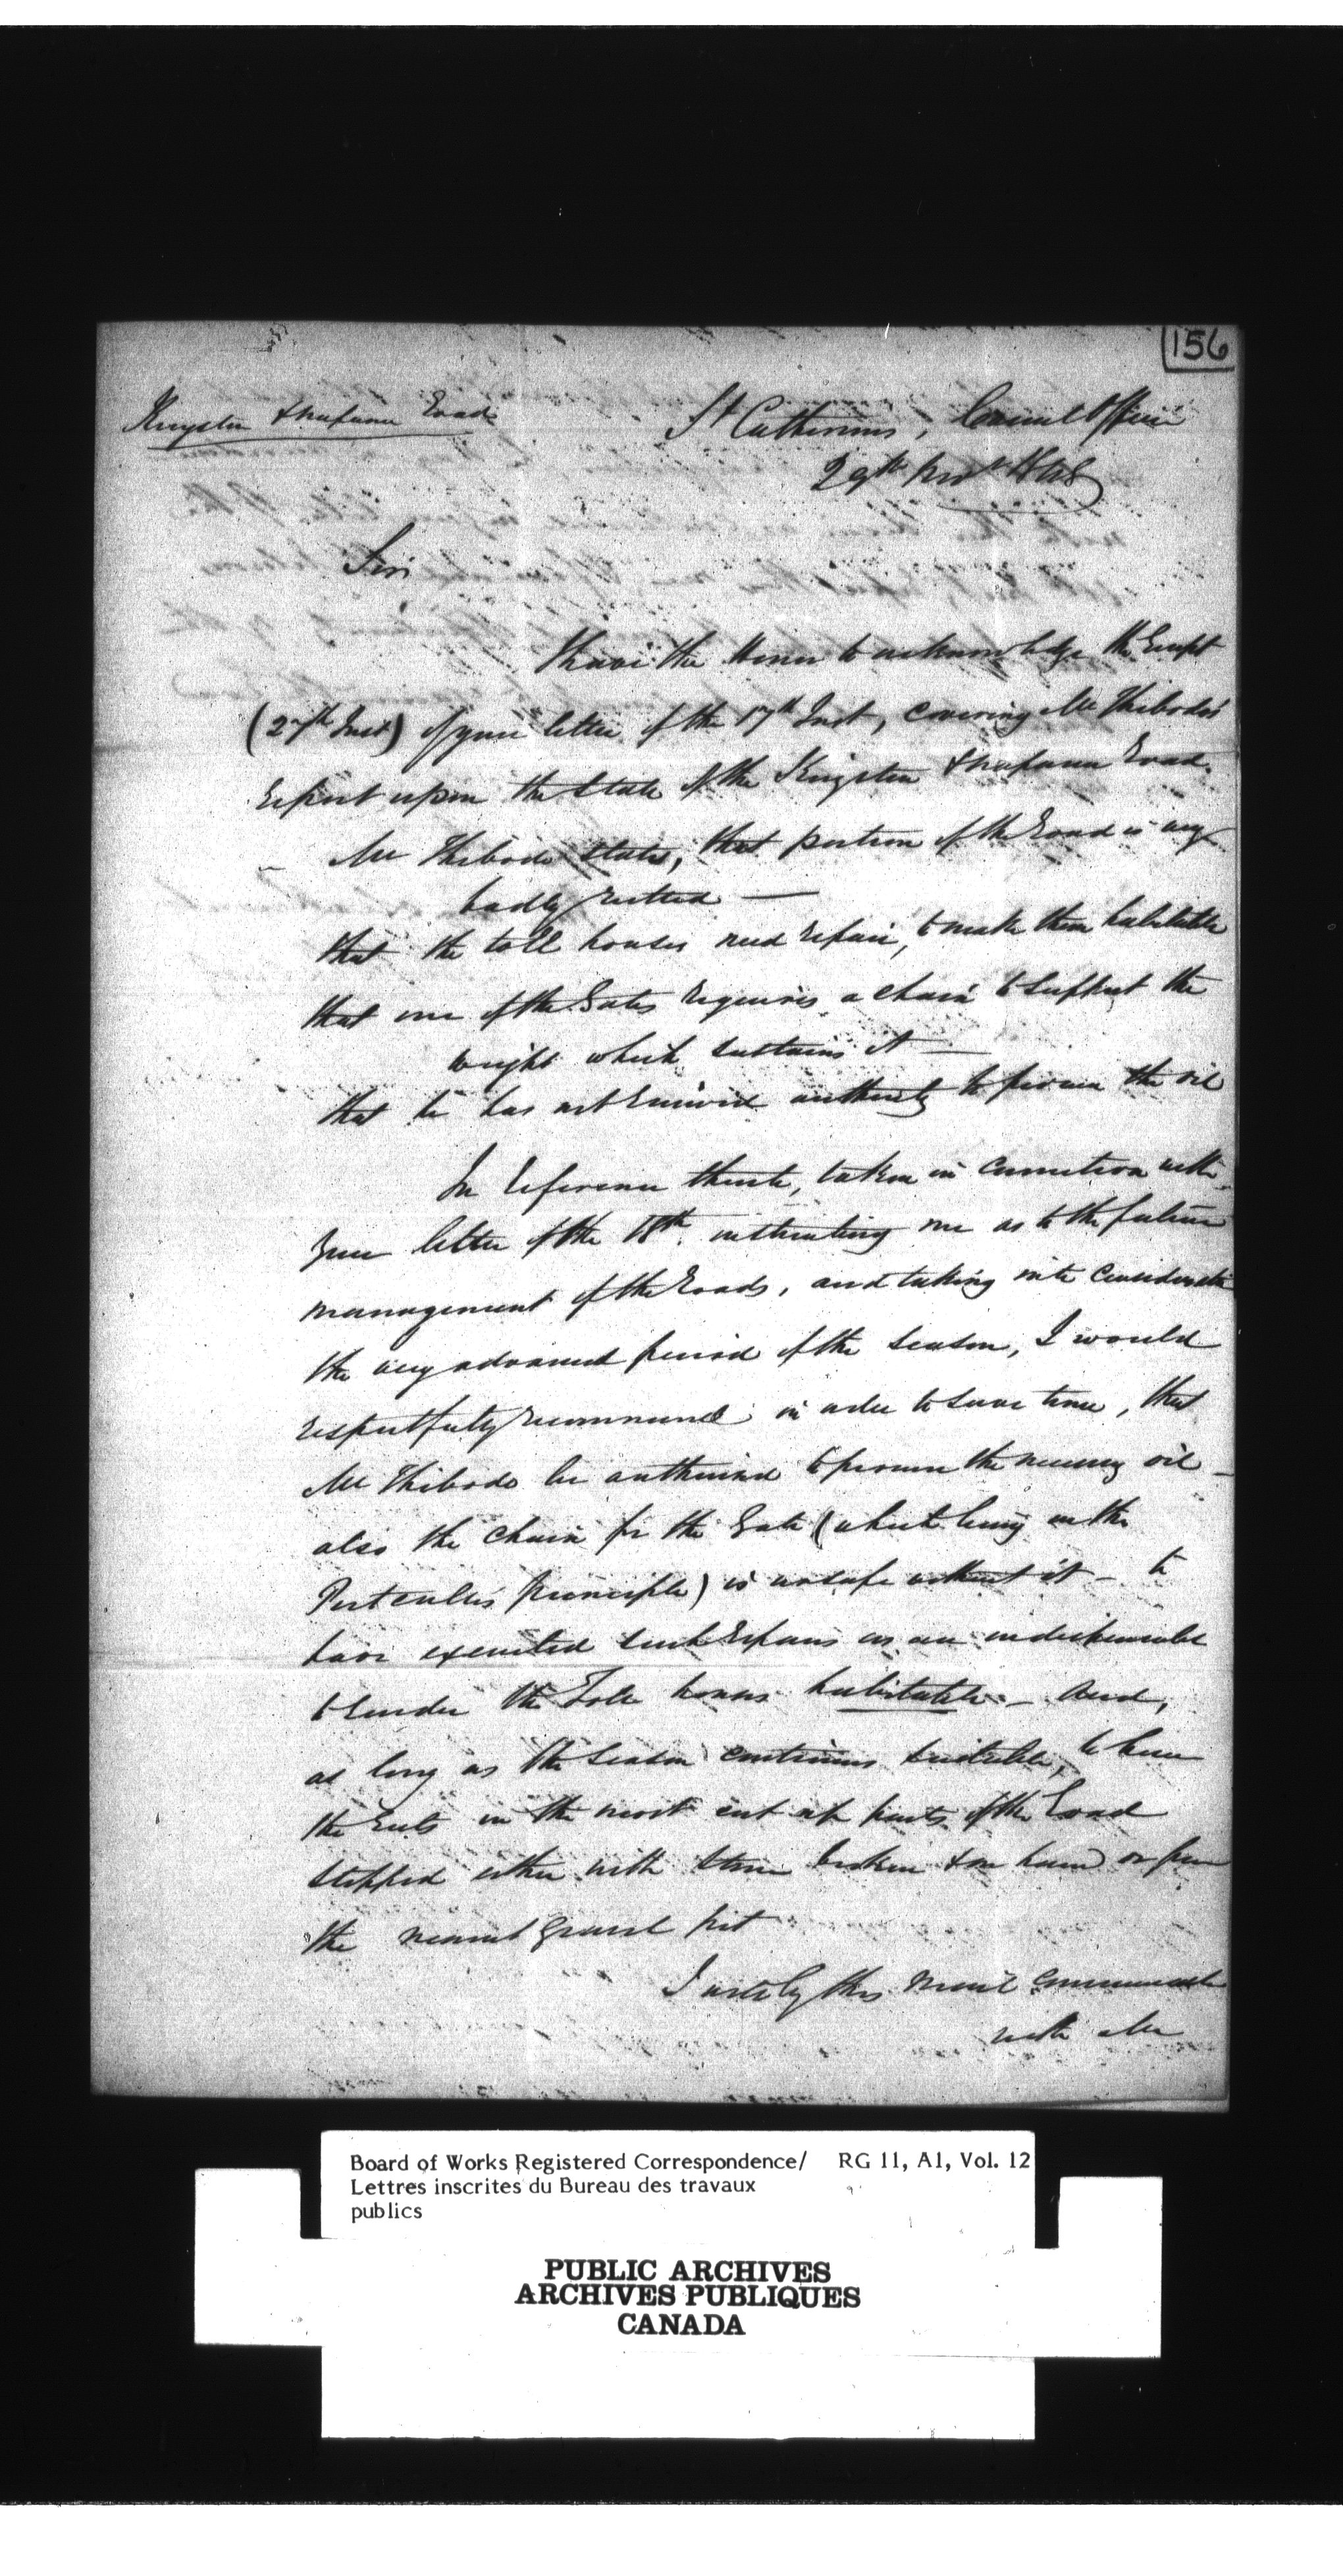 156
Kingston & Napanee Road
St Catherines, Canal Office
29th Novr 1848
Sir
I have the Honor to acknowledge the Receipt
(27th Inst) of your letter of the 17th Inst, covering Mr Thibodo's
Report upon the State of the Kingston & Napanee Road.
Mr Thibodo states, that portion of the Road is very
badly rutted —
that the toll houses need repair, to make them habitable
that one of the Gates requires a chain to support the
weight which sustains it —
that he has not received authority to procure the oil
In reference thereto, taken in connection with
your letter of the 18th instructing me as to the future
management of the Roads, and taking into consideration
the very advanced period of the season, I would
respectfully recommend in order to save time, that
Mr Thibodo be authorized to procure the necessary oil —
also the chain for the Gate (which being on the
Portcullis principle) is unsafe without it — to
have executed such repairs as are indispensable
to render the Toll houses habitable — And,
as long as the season continues suitable, to have
the Ruts in the most cut up parts of the Road
stopped either with stone broken & on hand or from
the nearest gravel pit
I write by this mail communicate
with Mr
Board of Works Registered Correspondence/ RG 11, A1, Vol. 12
Lettres inscrites du Bureau des travaux
publics
PUBLIC ARCHIVES
ARCHIVES PUBLIQUES
CANADA